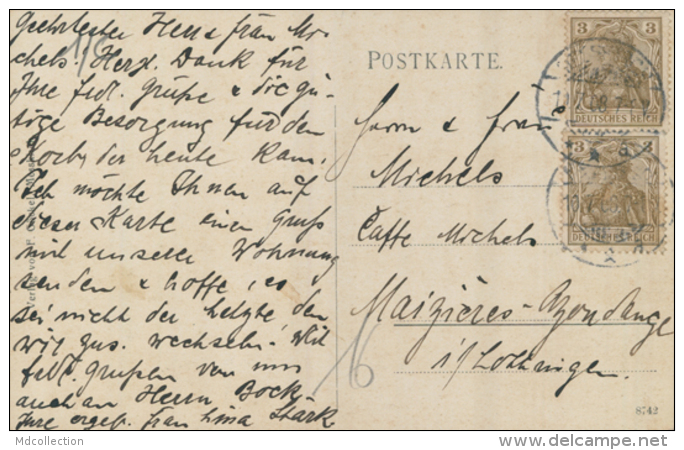 Geehrtester Herr & frau Mi-
chels! Herzl. Dank für
Ihre frdl. Grüße & die gü-
tige Besorgung für den
Korb, der heute kam.
Ich möchte Ihnen auf
dieser Karte einen Gruß
mit unserer Wohnung
senden & hoffe, es
sei nicht der letzte, den
wir zus. wechseln. Mit
frdl. Grüßen von uns
auch an Herrn Bock
Ihre ergeb. frau Lina Stark
POSTKARTE.
Herrn & Frau
Michels
Caffe Michels
Maizières-Azoudange
i/Lothringen.
3 3
DEUTSCHES REICH
3 3
DEUTSCHES REICH
8742
Mdcollection
www.delcampe.net